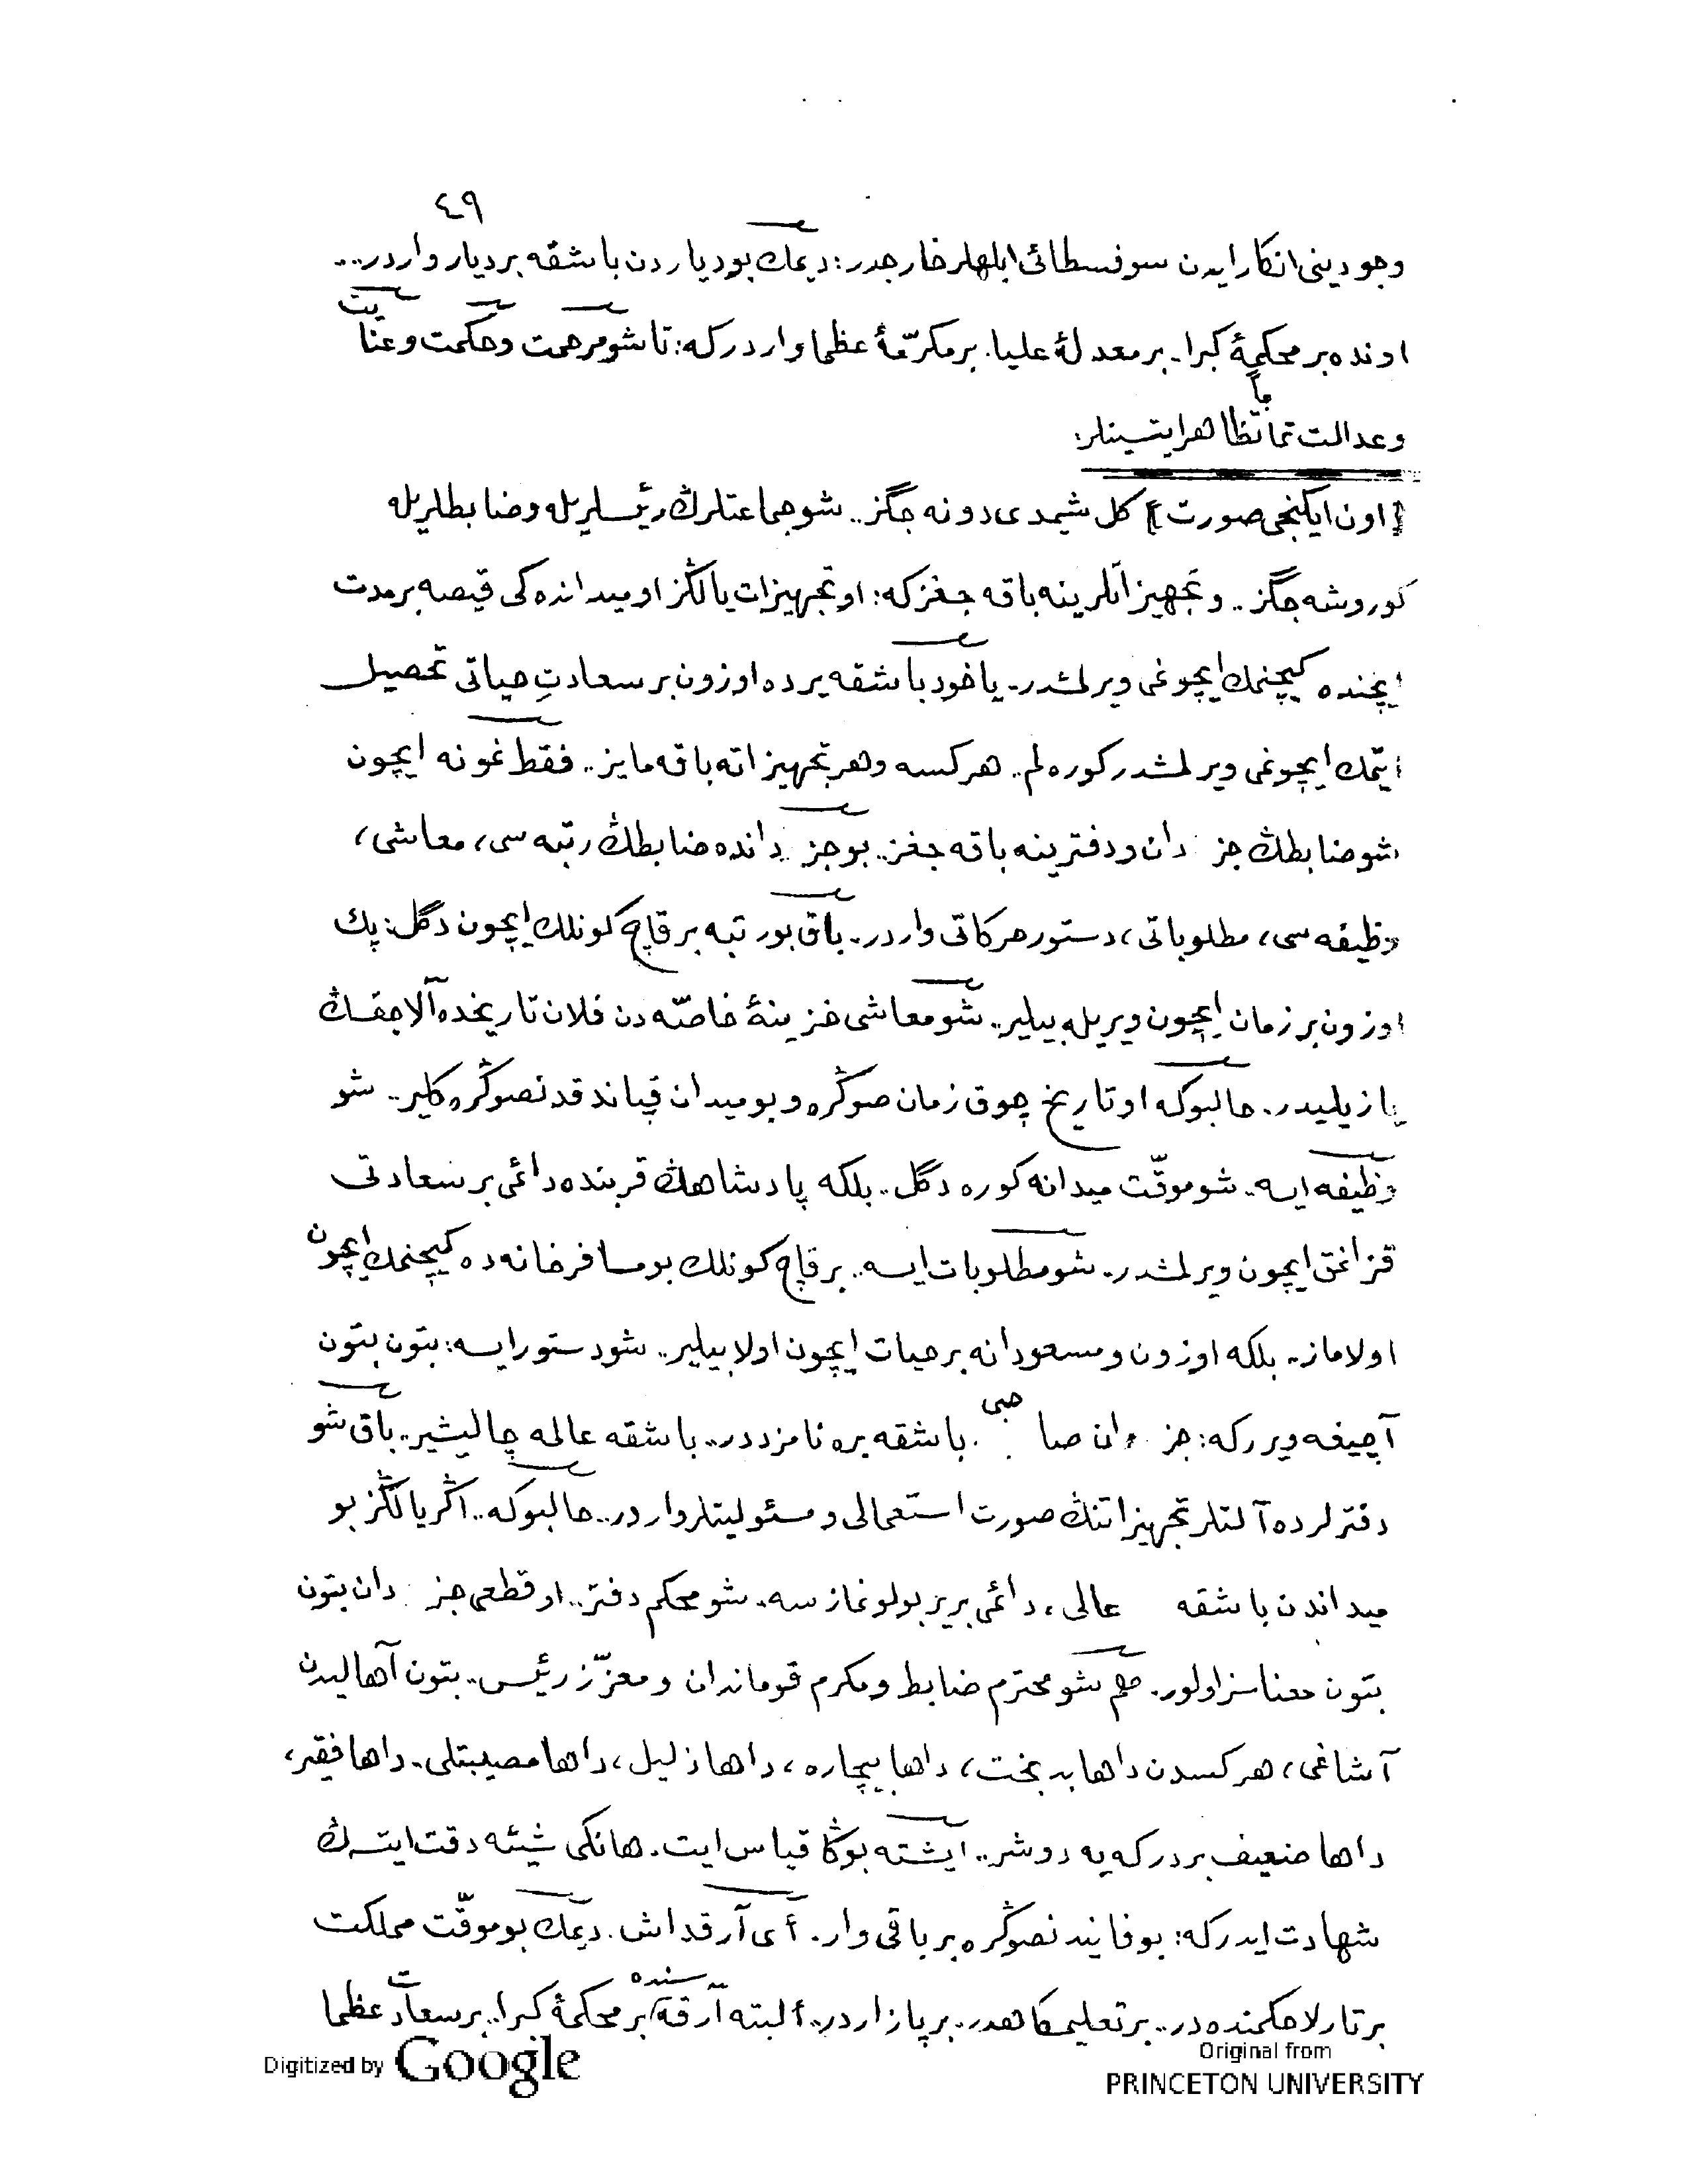 ٤٩
وجودینی انكار ایدن سوفسطائی ابلهلر خارجدر: دیمك بو دیاردن باشقه بر دیار واردر..
اونده بر محكمۀ كبرا. بر معدلۀ علیا. بر مكرمّۀ عظما واردر كه: تا شو مرحمت وحكمت وعنایت
وعدالت تماماً تظاهر ایتسینلر:
[اون ایكنجی صورت] كل شیمدی دونه جگز.. شو جماعتلرڭ رئیسلریله وضابطلریله
كوروشه جگز.. وتجهیزاتلرینه باقه جغز كه: او تجهیزات یالڭز او میدانده كی قیصه بر مدت
ایچنده كیچنمك ایچونمی ویرلمشدر. یاخود باشقه یرده اوزون بر سعادتِ حیاتی تحصیل
ایتمك ایچونمی ویرلمشدر كوره لم.. هركسه وهر تجهیزاته باقه مایز.. فقط نمونه ایچون
شو ضابطڭ جزدان ودفترینه باقه جغز.. بو جزدانده ضابطڭ رتبه سی، معاشی،
وظیفه سی، مطلوباتی، دستور حركاتی واردر. باق بو رتبه بر قاچ كونلك ایچون دگل: پك
اوزون بر زمان ایچون ویریله بیلیر.. شو معاشی خزینۀ خاصّه دن فلان تاریخده آلاجقسڭ
یازیلیدر. حالبوكه او تاریخ چوق زمان صوڭره وبو میدان قپاندقدنصوڭره كلیر.. شو
وظیفه ایسه.. شو موقّت میدانه كوره دگل.. بلكه پادشاهڭ قربنده دائمی بر سعادتی
قزانمق ایچون ویرلمشدر. شو مطلوبات ایسه.. بر قاچ كونلك بو مسافرخانه ده كیچنمك ایچون
اولاماز.. بلكه اوزون ومسعودانه بر حیات ایچون اولابیلیر.. شو دستور ایسه: بتون بتون
آچیغه ویرر كه: جزدان صاحبی باشقه یره نامزددر.. باشقه عالمه چالیشیر.. باق شو
دفترلرده آلتلر تجهیزاتنڭ صورت استعمالی ومسئولیتلر واردر.. حالبوكه.. اگر یالڭز بو
میداندن باشقه عالی، دائمی بر یر بولونمازسه. شو محكم دفتر.. او قطعی جزدان بتون
بتون معناسز اولور. هم شو محترم ضابط ومكرم قوماندان ومعزّز رئیس.. بتون آهالیدن
آشاغی، هركسدن داها بدبخت، داها بیچاره، داها ذلیل، داها مصیبتلی. داها فقیر،
داها ضعیف بر دركه یه دوشر.. ایشته بوڭا قیاس ایت. هانكی شیئه دقت ایتسه ڭ
شهادت ایدر كه: بو فانیدنصوڭره بر باقی وار. أی آرقداش. دیمك بو موقّت مملكت
بر تارلا حكمنده در.. بر تعلیمكاهدر. بر پازاردر.. ألبته آرقه سنده بر محكمۀ كبرا. بر سعادت عظما
Digitized by Google
Original from
PRINCETON UNIVERSITY